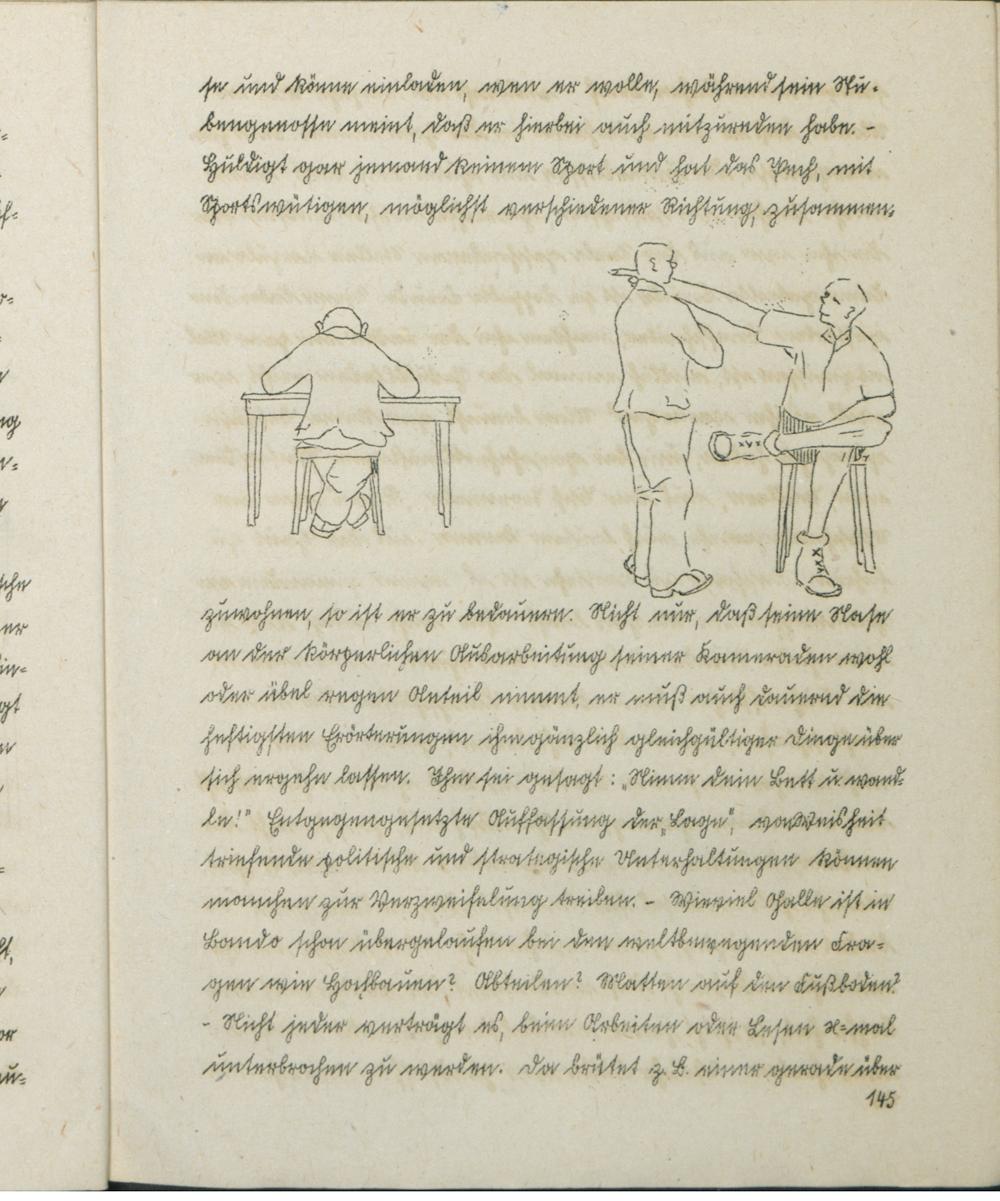 se und könne einladen, wen er wolle, während sein Stu-
bengenosse meint, daß er hierbei auch mitzureden habe. -
Huldigt gar jemand keinem Sport und hat das Pech, mit
Sportswütigen, möglichst verschiedener Richtung, zusammen-
zuwohnen, so ist er zu bedauern. Nicht nur, daß seine Nase
an der körperlichen Ausarbeitung seiner Kameraden wohl
oder übel regen Anteil nimmt, er muß auch dauernd die
heftigsten Erörterungen ihm gänzlich gleichgültiger Dinge über
sich ergehn lassen. Ihm sei gesagt: „Nimm dein Bett u. wand-
le!" Entgegengesetzte Auffassung der „Lage", von Weisheit
triefende politische und strategische Unterhaltungen können
manchen zur Verzweifelung treiben. - Wieviel Galle ist in
Bando schon übergelaufen bei den weltbewegenden Fra-
gen wie Hochbauen? Abteilen? Matten auf den Fußboden?
- Nicht jeder verträgt es, beim Arbeiten oder Lesen x-mal
unterbrochen zu werden. Da brütet z.B. einer gerade über
145